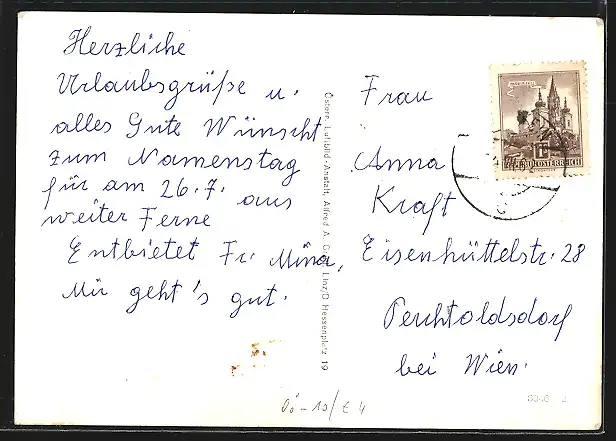 Herzliche
Urlaubsgrüße u.
alles Gute Wünscht
zum Namenstag
für am 26.7. aus
weiter Ferne
Entbietet Fr. Mina,
Mir geht's gut.
Österr. Luftbild-Anstalt, Alfred A. Linz/D Hessenplatz 19
Frau
Anna
Kraft
Eisenhüttelstr. 28
Perchtoldsdorf
bei Wien.
ÖSTERREICH
OÖ-10/E4